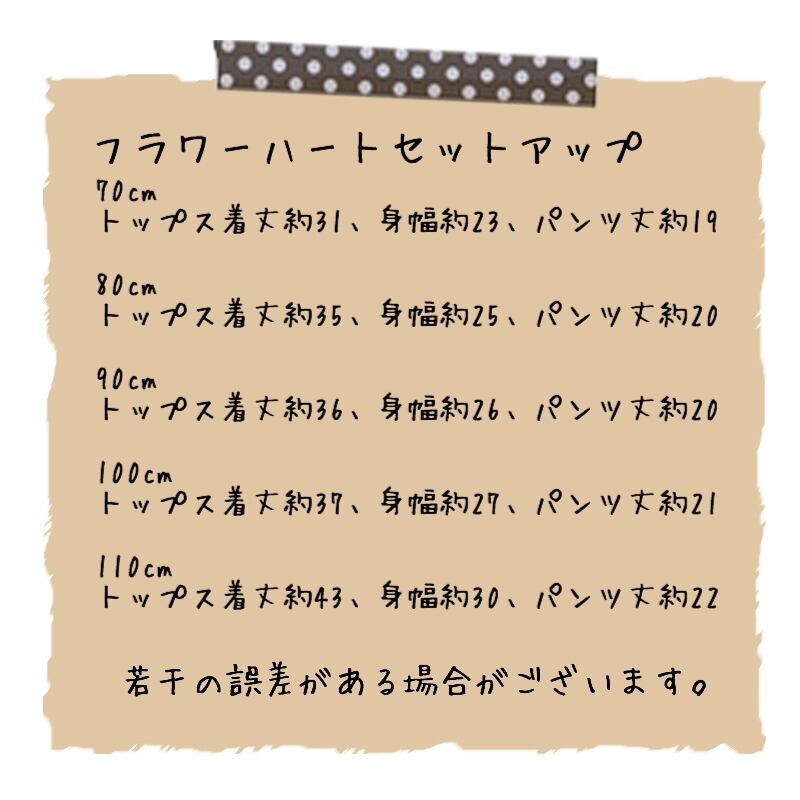 フラワーハートセットアップ
70cm
トップス着丈約31、身幅約23、パンツ丈約19
80cm
トップス着丈約35、身幅約25、パンツ丈約20
90cm
トップス着丈約36、身幅約26、パンツ丈約20
100cm
トップス着丈約37、身幅約27、パンツ丈約21
110cm
トップス着丈約43、身幅約30、パンツ丈約22
若干の誤差がある場合がございます。